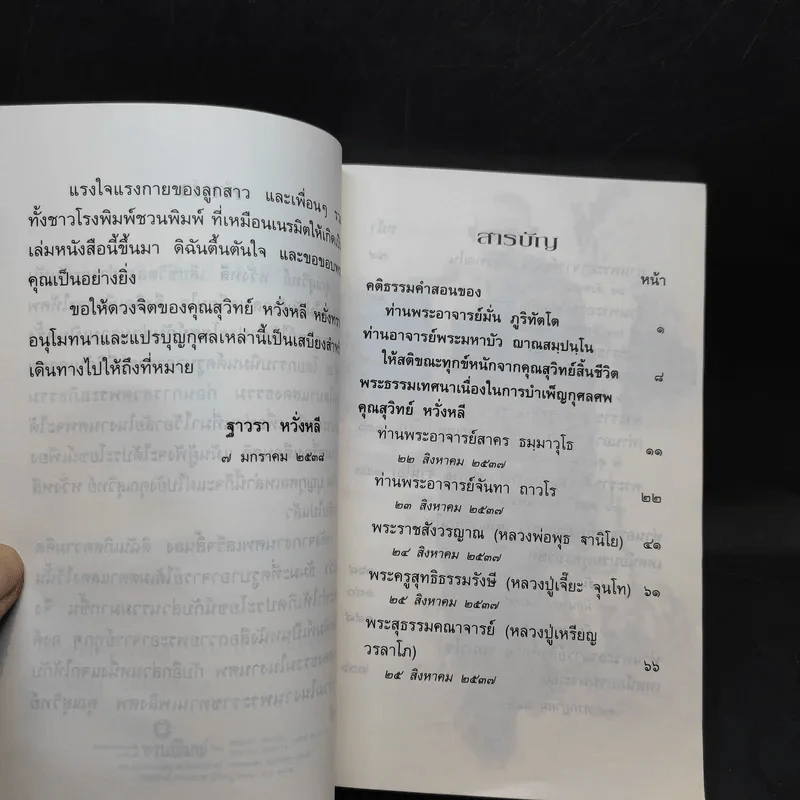 แรงใจแรงกายของลูกสาว และเพื่อนๆ
ทั้งชาวโรงพิมพ์ชวนพิมพ์ ที่เหมือนเนรมิตให้เกิด
เล่มหนังสือนี้ขึ้นมา ดิฉันตื้นตันใจ และขอขอบ
คุณเป็นอย่างยิ่ง
ขอให้ดวงจิตของคุณสุวิทย์ หวั่งหลี หยั่ง
อนุโมทนาและแปรบุญกุศลเหล่านี้เป็นเสบียง
เดินทางไปให้ถึงที่หมาย
ฐาวรา หวั่งหลี
๗ มกราคม ๒๕๓๘
สารบัญ
หน้า
คติธรรมคำสอนของ
ท่านพระอาจารย์มั่น ภูริทัตโต ๑
ท่านอาจารย์พระมหาบัว ญาณสมฺปนฺโน
ให้สติขณะทุกข์หนักจากคุณสุวิทย์สิ้นชีวิต ๘
พระธรรมเทศนาเนื่องในการบำเพ็ญกุศลศพ
คุณสุวิทย์ หวั่งหลี
ท่านพระอาจารย์สาคร ธมฺมาวุโธ ๑๑
๒๒ สิงหาคม ๒๕๓๗
ท่านพระอาจารย์จันทา ถาวโร ๒๒
๒๓ สิงหาคม ๒๕๓๗
พระราชสังวรญาณ (หลวงพ่อพุธ ฐานิโย) ๔๑
๒๔ สิงหาคม ๒๕๓๗
พระครูสุทธิธรรมรังษี (หลวงปู่เจี๊ยะ จุนโท) ๖๑
๒๕ สิงหาคม ๒๕๓๗
พระสุธรรมคณาจารย์ (หลวงปู่เหรียญ
วรลาโภ) ๖๖
๒๕ สิงหาคม ๒๕๓๗